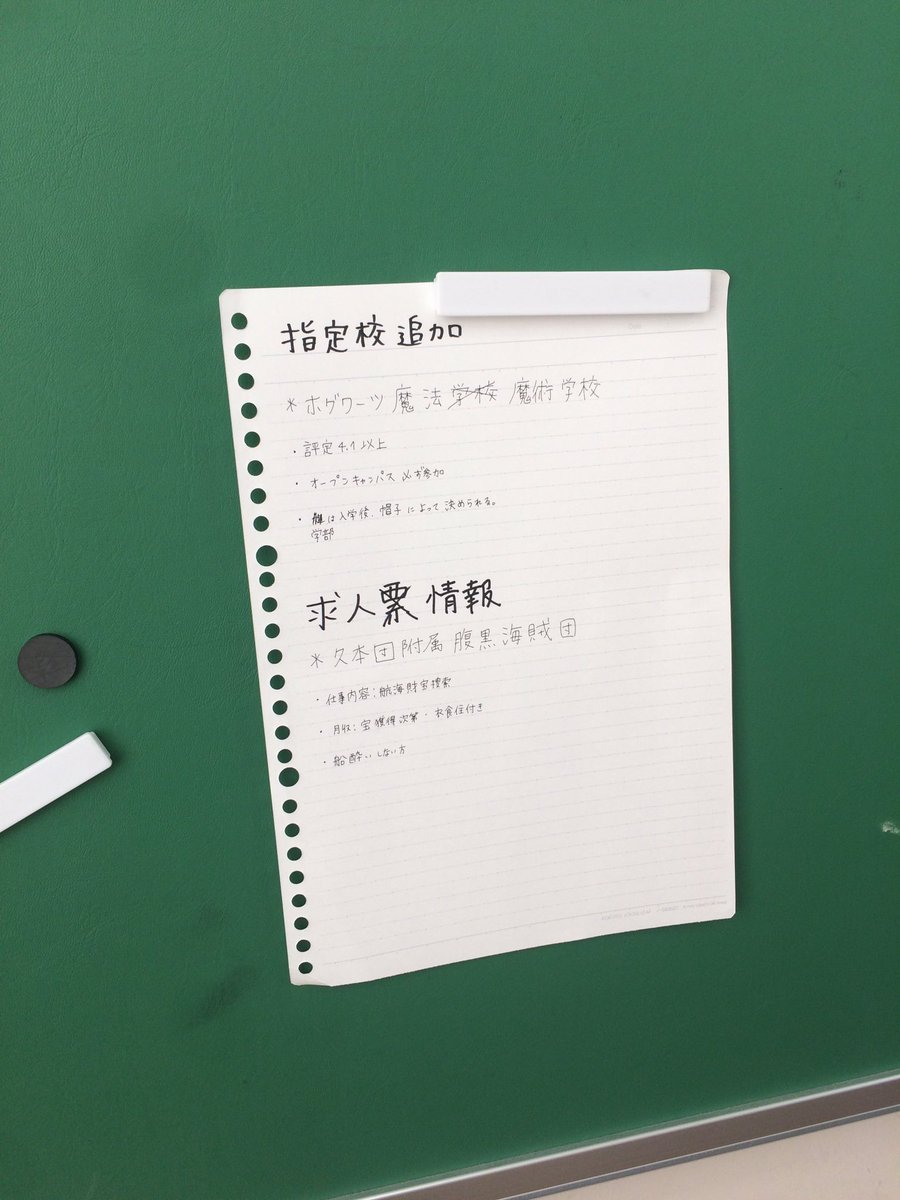 指定校追加
*ホグワーツ魔法学校 魔術学校
・評定4.1以上
・オープンキャンパス必ず参加
・は入学後、帽子によって決められる。
学部
求人票情報
*久本団附属腹黒海賊団
・仕事内容:航海財宝捜索
・月収:宝獲得次第・衣食住付き
・船酔いしない方